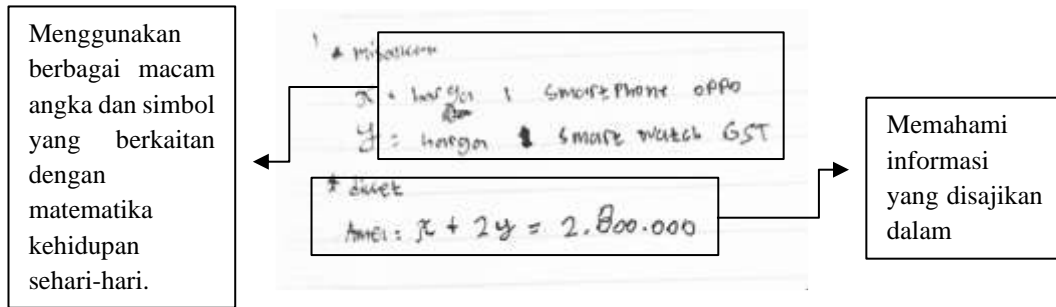 Menggunakan
berbagai macam
angka dan simbol
yang berkaitan
dengan
matematika
kehidupan
sehari-hari.
1 * misalkan
x = harga 1 smartphone oppo
y = harga 1 smart watch GST
* diket
Amei: x + 2y = 2.800.000
Memahami
informasi
yang disajikan
dalam